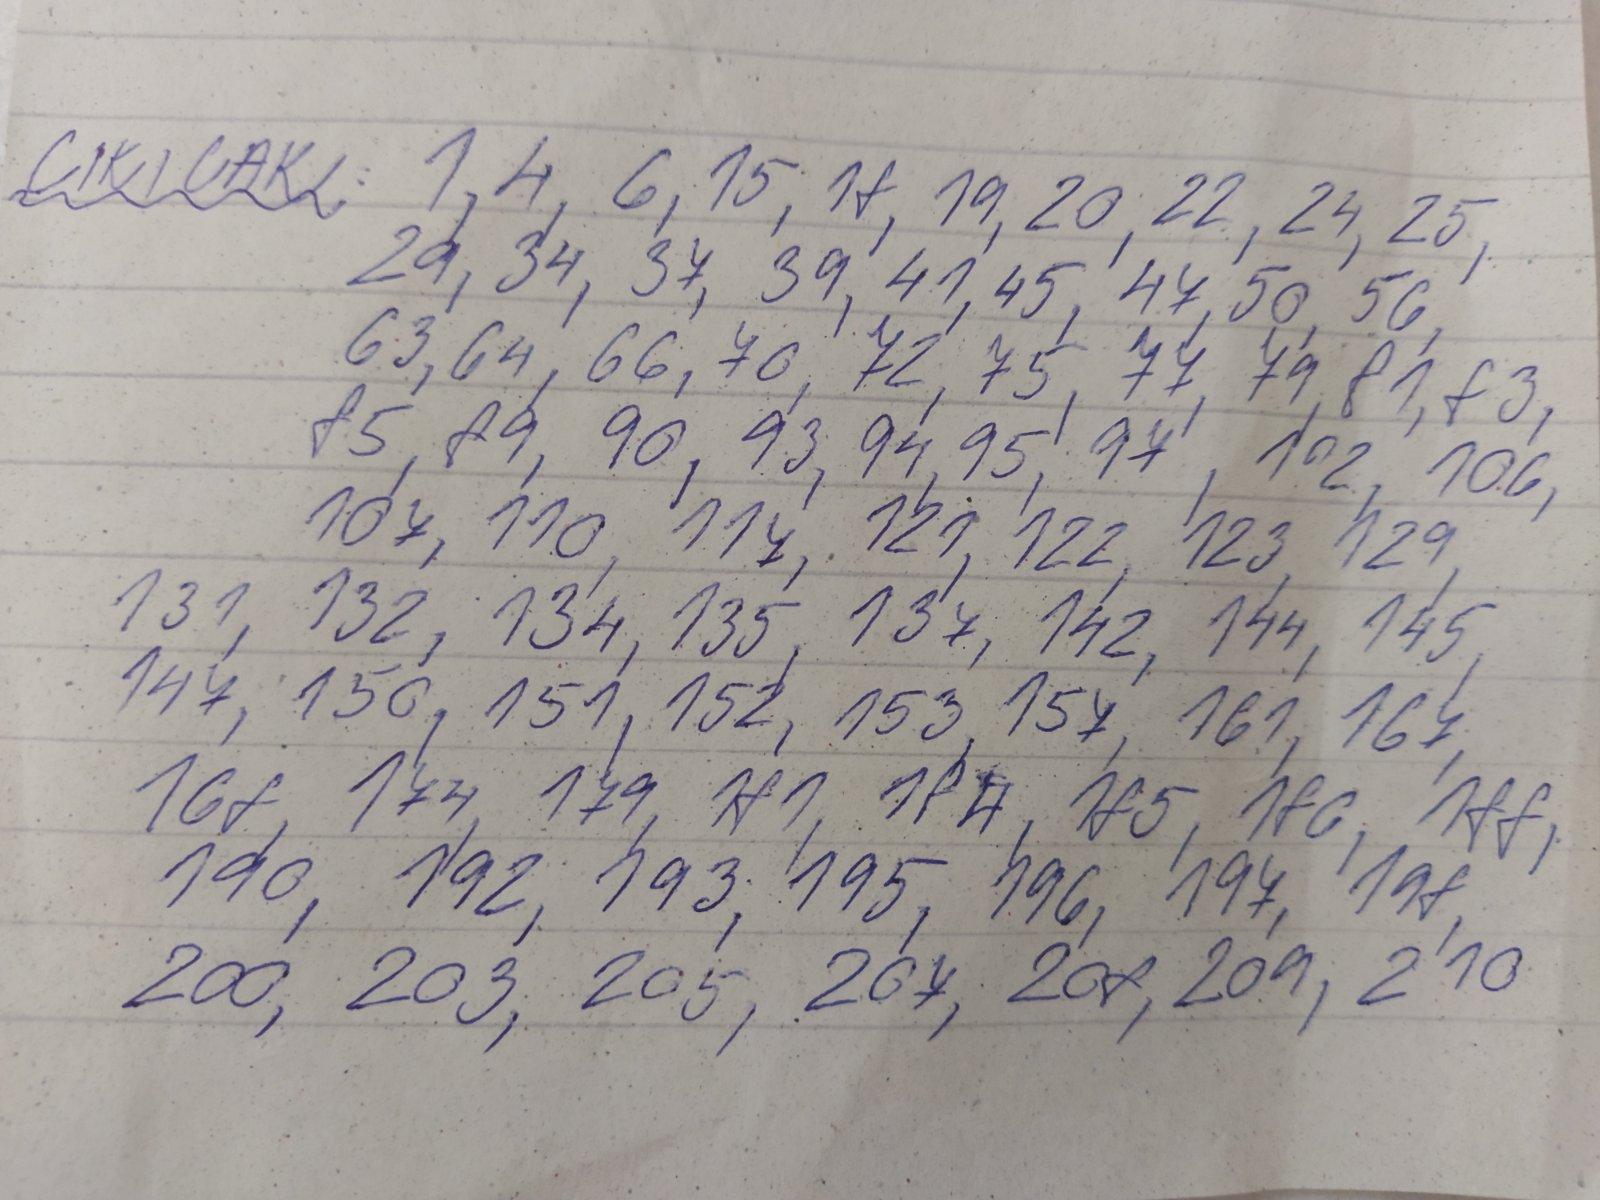 CIKI CAKI: 1, 4, 6, 15, 18, 19, 20, 22, 24, 25,
29, 34, 37, 39, 41, 45, 47, 50, 56,
63, 64, 66, 70, 72, 75, 77, 79, 81, 83,
85, 89, 90, 93, 94, 95, 97, 102, 106,
107, 110, 117, 121, 122, 123, 129,
131, 132, 134, 135, 137, 142, 144, 145,
147, 150, 151, 152, 153, 157, 161, 167,
168, 174, 179, 181, 184, 185, 186, 188,
190, 192, 193, 195, 196, 197, 198,
200, 203, 205, 207, 208, 209, 210